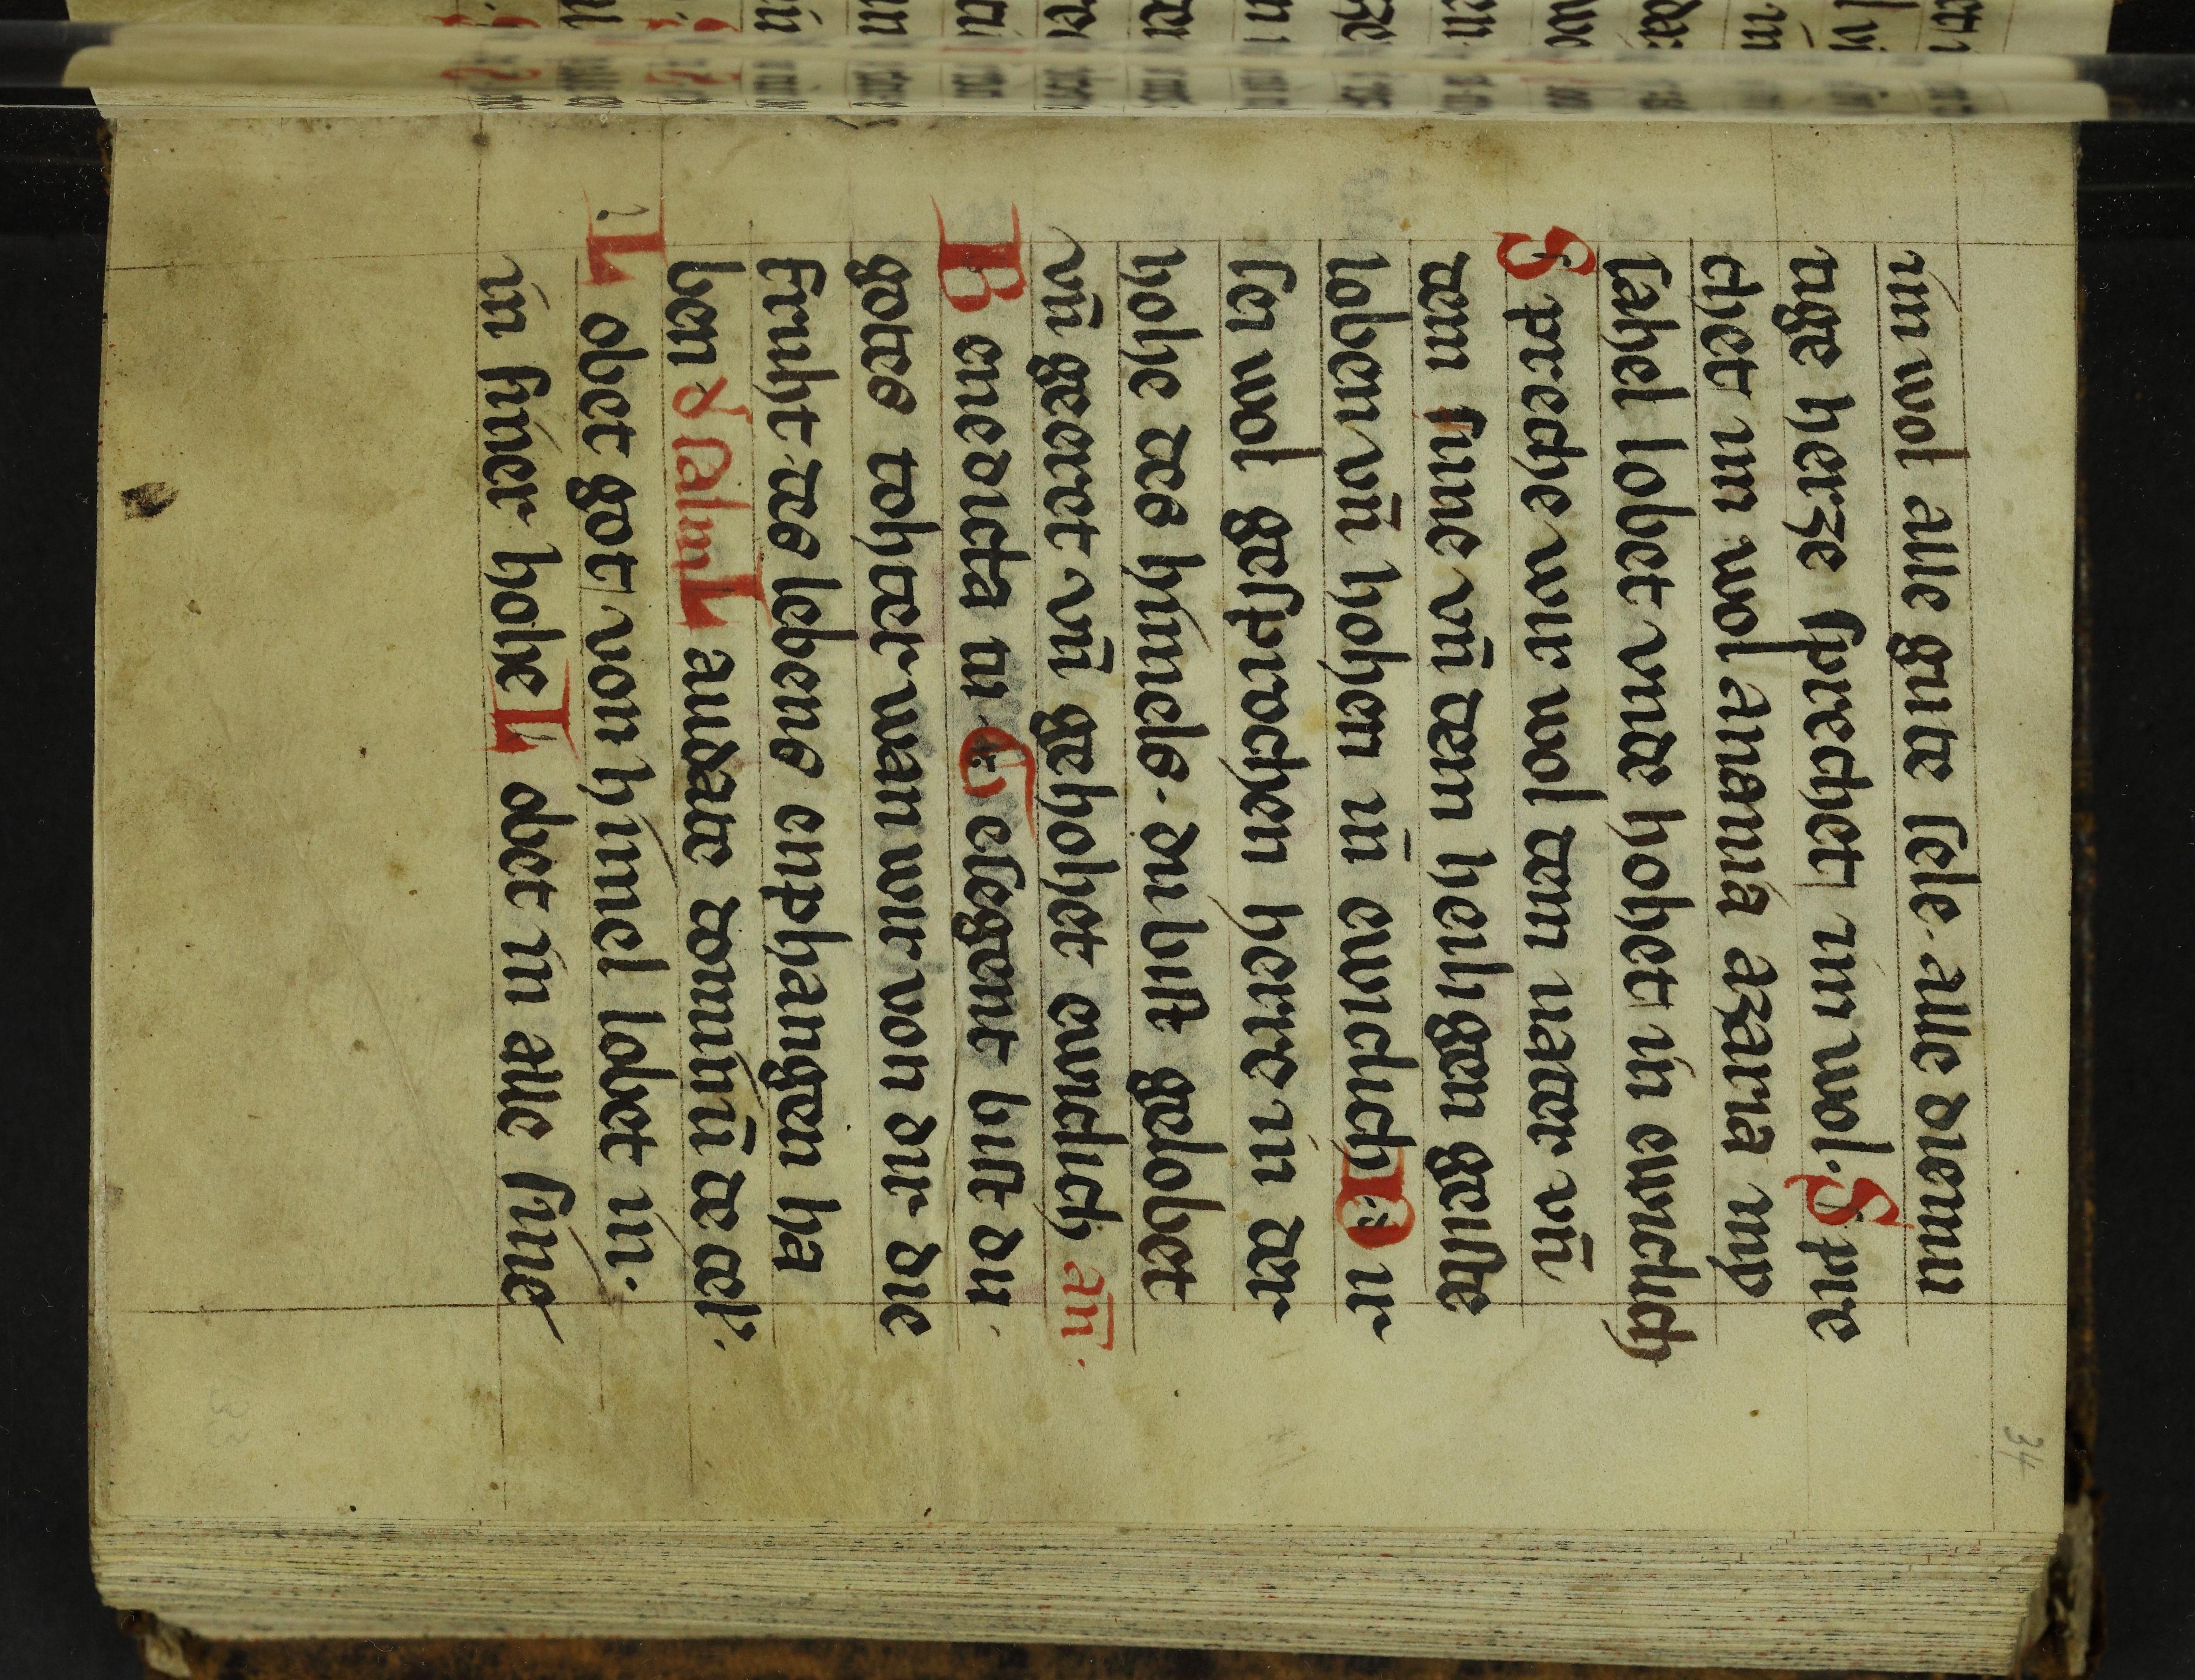 im wol alle gute sele. alle diemu
tige herze sprechet im wol. Spre
chet im wol anania azaria my
sahel lobet vnde hohet in ewiclich
Spreche wir wol dem uater vn̄
dem sune vn̄ dem heiligen geiste
loben vn̄ hohen in ewiclich D ir
ist wol gesprochen herre in der
hohe des himels. du bist gelobet
vn̄ geeret vn̄ gehohet ewiclich an̄.
Benedicta tu Gesegent bist du
gotes tohter wan wir von dir die
fruht des lebens enphangen ha
ben psalm Laudate dominū de cel'.
Lobet got von himel lobet in.
in siner hohe Lobet in alle sine
34
33